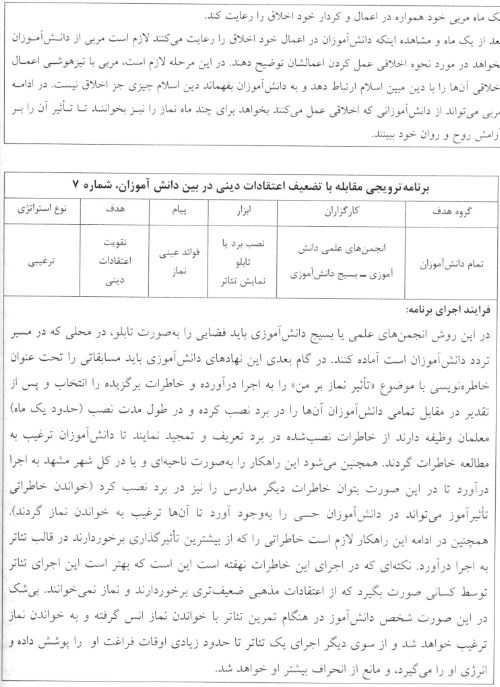 یک ماه مربی خود همواره در اعمال و کردار خود اخلاق را رعایت کند.
عد از یک ماه و مشاهده اینکه دانش‌آموزان در اعمال خود اخلاق را رعایت می‌کنند لازم است مربی از دانش‌آموزان
خواهد در مورد نحوه اخلاقی عمل کردن اعمالشان توضیح دهند. در این مرحله لازم است، مربی با تیزهوشی اعمال
خلاقی آن‌ها را با دین مبین اسلام ارتباط دهد و به دانش‌آموزان بفهماند دین اسلام چیزی جز اخلاق نیست. در ادامه
مربی می‌تواند از دانش‌آموزانی که اخلاقی عمل می‌کنند بخواهد برای چند ماه نماز را نیز بخوانند تا تأثیر آن را بر
آرامش روح و روان خود ببینند.
برنامه ترویجی مقابله با تضعیف اعتقادات دینی در بین دانش آموزان، شماره ۷
گروه هدف کارگزاران ابزار پیام هدف نوع استراتژی
تمام دانش‌آموزان
انجمن‌های علمی دانش
آموزی – بسیج دانش‌آموزی
نصب برد یا
تابلو
نمایش تئاتر
فوائد عینی
نماز
تقویت
اعتقادات
دینی
ترغیبی
فرایند اجرای برنامه:
در این روش انجمن‌های علمی یا بسیج دانش‌آموزی باید فضایی را به‌صورت تابلو، در محلی که در مسیر
تردد دانش‌آموزان است آماده کنند. در گام بعدی این نهادهای دانش‌آموزی باید مسابقاتی را تحت عنوان
خاطره‌نویسی با موضوع «تأثیر نماز بر من» را به اجرا درآورده و خاطرات برگزیده را انتخاب و پس از
تقدیر در مقابل تمامی دانش‌آموزان آن‌ها را در برد نصب کرده و در طول مدت نصب (حدود یک ماه)
معلمان وظیفه دارند از خاطرات نصب‌شده در برد تعریف و تمجید نمایند تا دانش‌آموزان ترغیب به
مطالعه خاطرات گردند. همچنین می‌شود این راهکار را به‌صورت ناحیه‌ای و یا در کل شهر مشهد به اجرا
درآورد تا در این صورت بتوان خاطرات دیگر مدارس را نیز در برد نصب کرد (خواندن خاطراتی
تأثیرآموز می‌تواند در دانش‌آموزان حسی را به‌وجود آورد تا آن‌ها ترغیب به خواندن نماز گردند).
همچنین در ادامه این راهکار لازم است خاطراتی را که از بیشترین تأثیرگذاری برخوردارند در قالب تئاتر
به اجرا درآورد. نکته‌ای که در اجرای این خاطرات نهفته است این است که بهتر است این اجرای تئاتر
توسط کسانی صورت بگیرد که از اعتقادات مذهبی ضعیف‌تری برخوردارند و نماز نمی‌خوانند. بی‌شک
در این صورت شخص دانش‌آموز در هنگام تمرین تئاتر با خواندن نماز انس گرفته و به خواندن نماز
ترغیب خواهد شد و از سوی دیگر اجرای یک تئاتر تا حدود زیادی اوقات فراغت او را پوشش داده و
انرژی او را می‌گیرد، و مانع از انحراف بیشتر او خواهد شد.